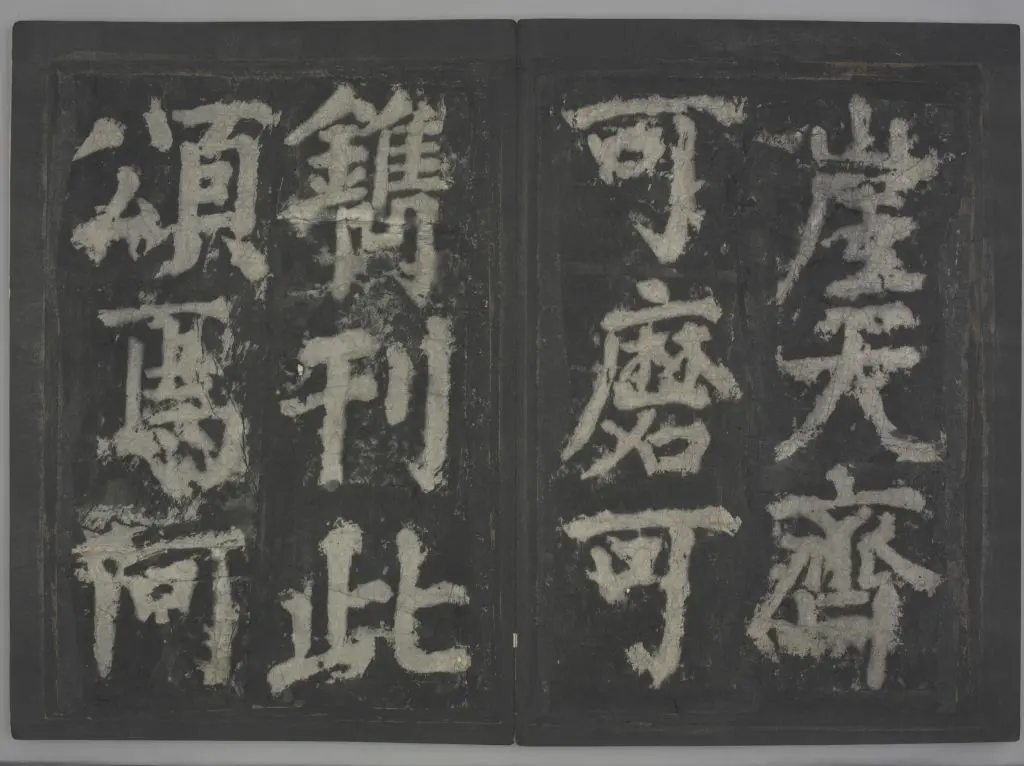 崖天齊
可磨可
鐫刊此
頌焉何